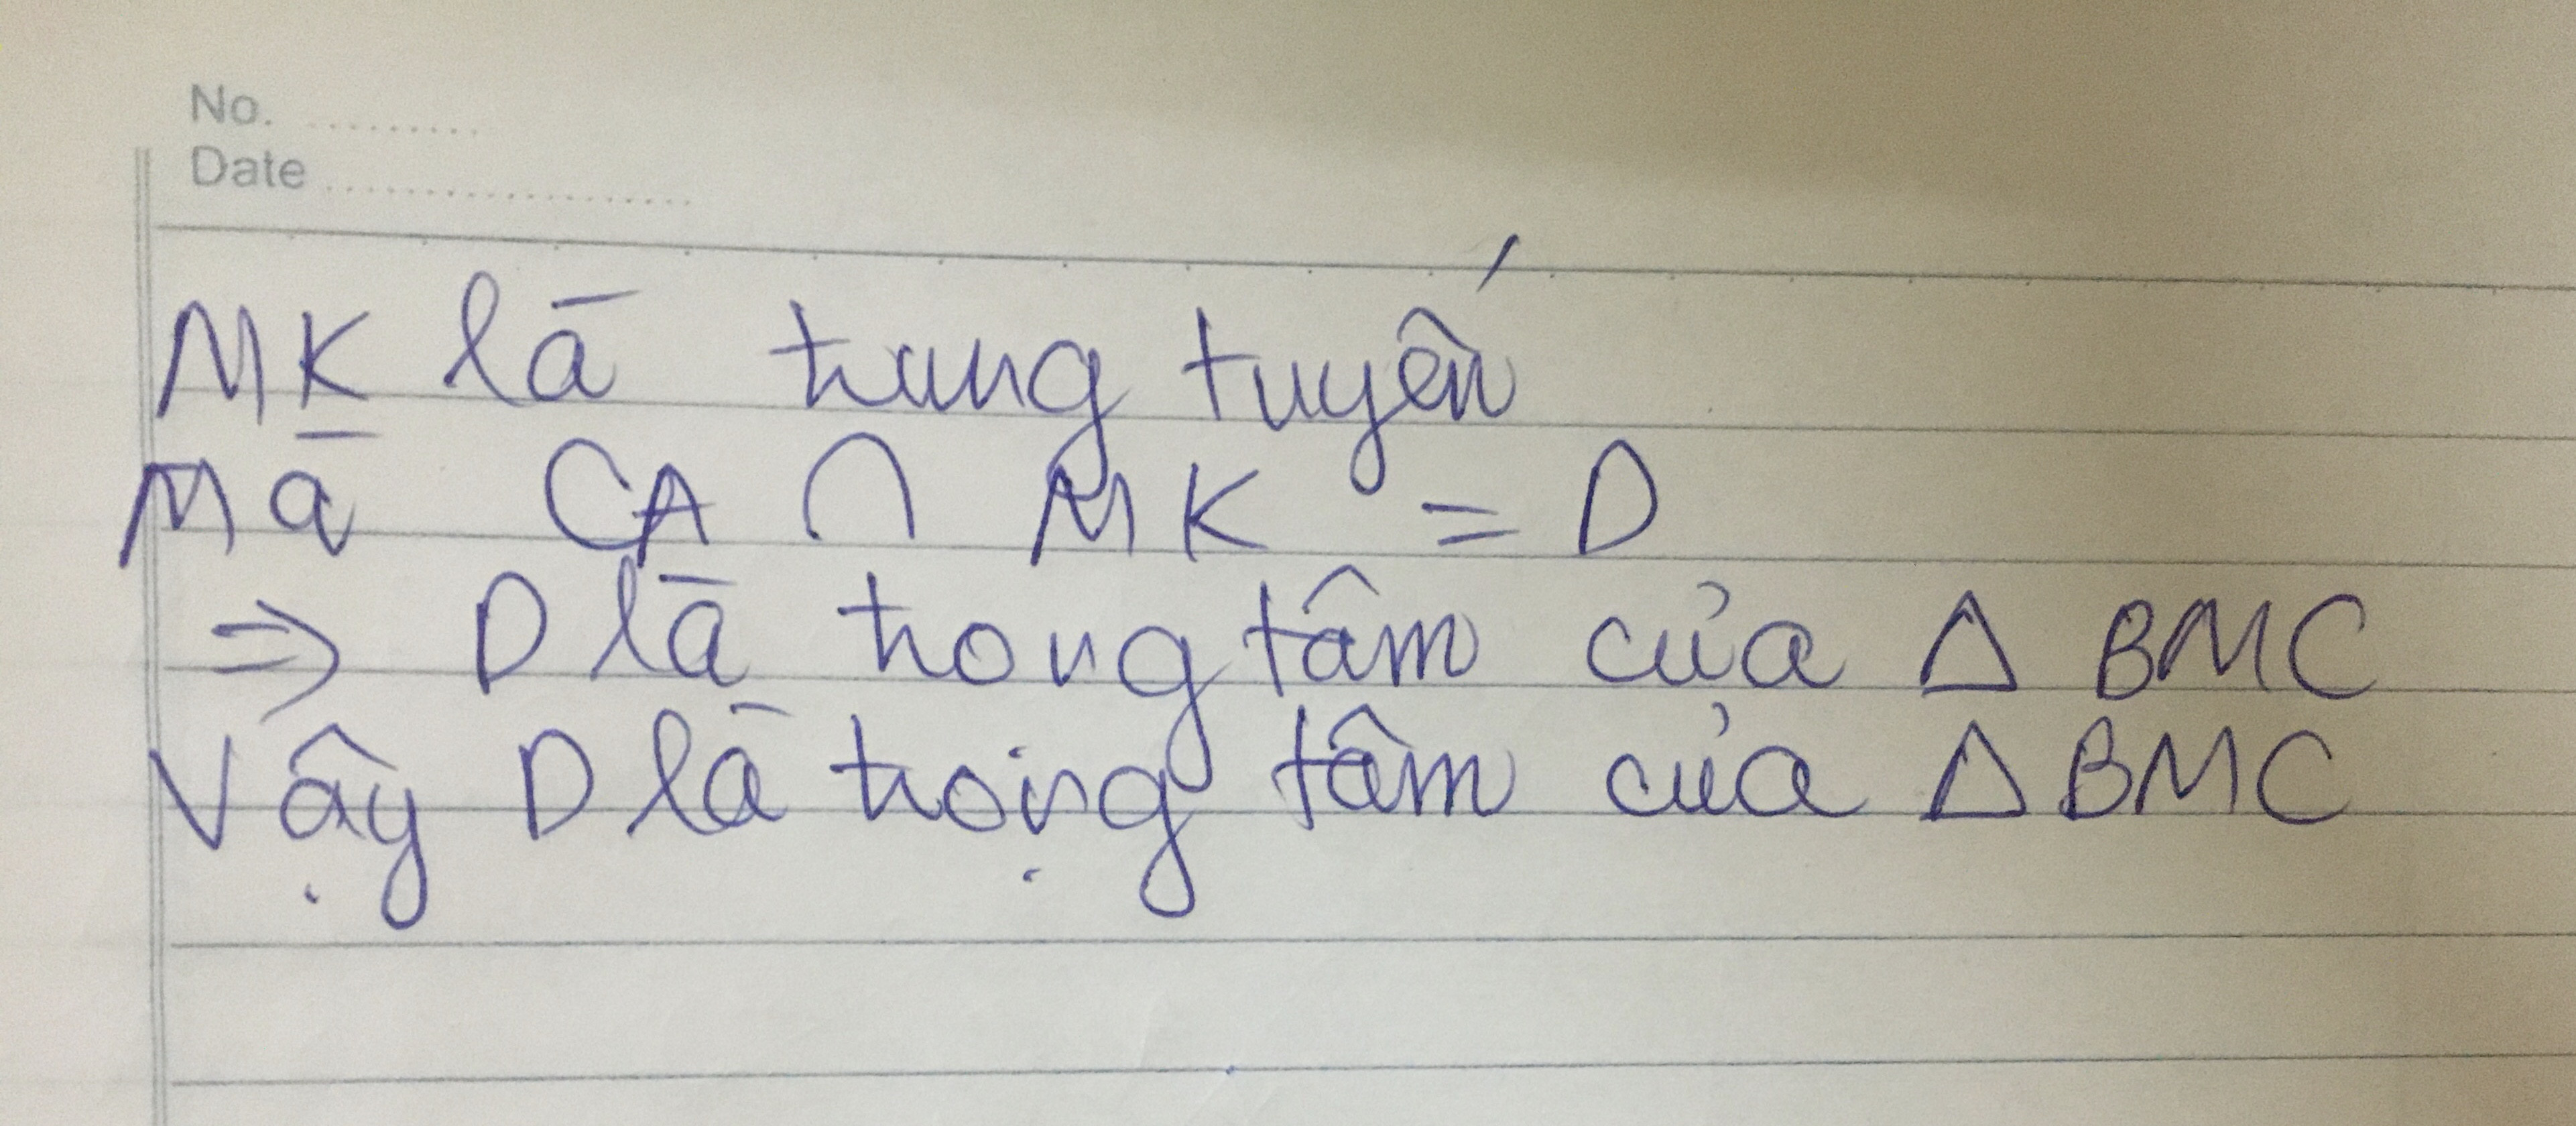 No. .........
Date ...................
MK là trung tuyến
Mà CA ∩ MK = D
=> D là trong tâm của Δ BMC
Vậy D là trọng tâm của Δ BMC